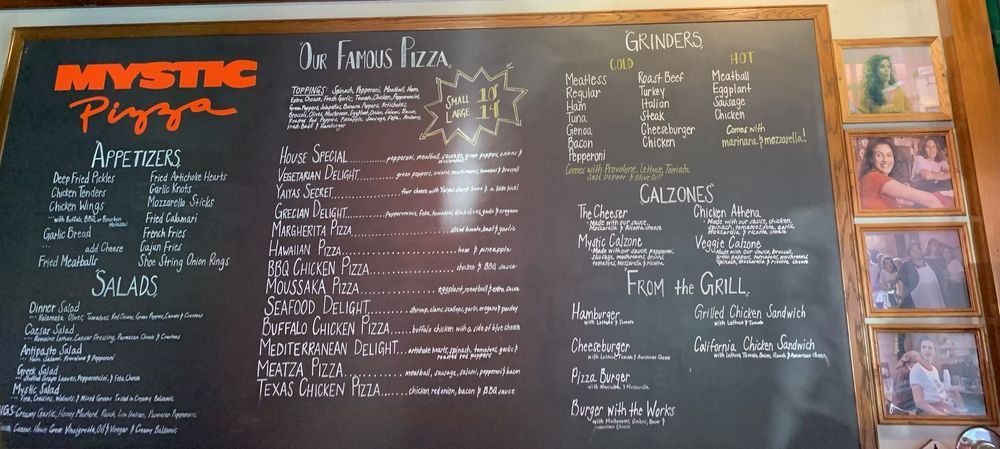 MYSTIC
Pizza
APPETIZERS
Deep Fried Pickles
Chicken Tenders
Chicken Wings
...with Buffalo, BBQ, or Bourbon
Molasses
Garlic Bread
... add Cheese
Fried Meatballs
Fried Artichoke Hearts
Garlic Knots
Mozzarella Sticks
Fried Calamari
French Fries
Cajun Fries
Shoe String Onion Rings
SALADS
Dinner Salad
... Kalamata Olives, Tomatoes, Red Onions, Green Peppers, Carrots & Croutons
Caesar Salad
... Romaine Lettuce, Caesar Dressing, Parmesan Cheese & Croutons
Antipasto Salad
... Ham, Salami, Provolone & Pepperoni
Greek Salad
... Stuffed Grape Leaves, Pepperoncini, & Feta Cheese
Mystic Salad
... Feta, Craisins, Walnuts & Mixed Greens Tossed in Creamy Balsamic
Creamy Garlic, Honey Mustard, Ranch, Parmesan Peppercorn
Caesar, House Greek Vinaigrette, Oil & Vinegar & Creamy Balsamic
OUR FAMOUS PIZZA
TOPPINGS: Spinach, Pepperoni, Meatball, Ham,
Extra Cheese, Fresh Garlic, Tomato, Chicken, Pepperoncini,
Green Peppers, Jalapeños, Banana Peppers, Artichokes,
Broccoli, Olives, Mushroom, Eggplant, Onion, Salami, Bacon,
Roasted Red Peppers, Pineapple, Sausage, Feta,
Fresh Basil & Hamburger
SMALL 10"
LARGE 14"
HOUSE SPECIAL ............ pepperoni, meatball, sausage, green peppers, onions &
mushrooms
VEGETARIAN DELIGHT ............ green peppers, onions, mushrooms, tomatoes & broccoli
YAIYAS SECRET ............ four cheese with Yaiyas Secret Sauce & a little kick!
GRECIAN DELIGHT ............ Pepperoncinis, feta, tomatoes, black olives, garlic & oregano
MARGHERITA PIZZA ............ sliced tomato, basil & garlic
HAWAIIAN PIZZA ............ ham & pineapple
BBQ CHICKEN PIZZA ............ chicken & BBQ sauce
MOUSSAKA PIZZA ............ eggplant, meatball & extra sauce
SEAFOOD DELIGHT ............ shrimp, clams, scallops, garlic, oregano & parsley
BUFFALO CHICKEN PIZZA ...... buffalo chicken with a side of blue cheese
MEDITERRANEAN DELIGHT... artichoke hearts, spinach, tomatoes, garlic &
roasted red peppers
MEATZA PIZZA ............ meatball, sausage, salami, pepperoni & bacon
TEXAS CHICKEN PIZZA ............ chicken, red onion, bacon & BBQ sauce
GRINDERS
COLD
HOT
Meatless
Regular
Ham
Tuna
Genoa
Bacon
Pepperoni
Roast Beef
Turkey
Italian
Steak
Cheeseburger
Chicken
Meatball
Eggplant
Sausage
Chicken
Comes with
marinara & mozzarella!
Comes with Provolone, Lettuce, Tomato,
Salt, Pepper & olive Oil!
CALZONES
The Cheeser
- Made with our sauce,
Mozzarella & Ricotta cheese
Mystic Calzone
- Made with our sauce, pepperoni,
sausage, mushrooms, onions
tomatoes, Mozzarella & ricotta
Chicken Athena
- Made with our sauce, chicken,
spinach, tomatoes, feta, garlic,
mozzarella & ricotta cheese
Veggie Calzone
- Made with our sauce, broccoli,
green peppers, tomatoes, mushrooms
Spinach, Mozzarella & ricotta cheese
FROM the GRILL
Hamburger
with Lettuce & Tomato
Cheeseburger
with Lettuce, Tomato & American Cheese
Pizza Burger
with Marinara & Mozzarella
Burger with the Works
with Mushrooms, Onions, Bacon &
American Cheese
Grilled Chicken Sandwich
with Lettuce & Tomato
California Chicken Sandwich
with Lettuce, Tomato, Bacon, Ranch & American cheese